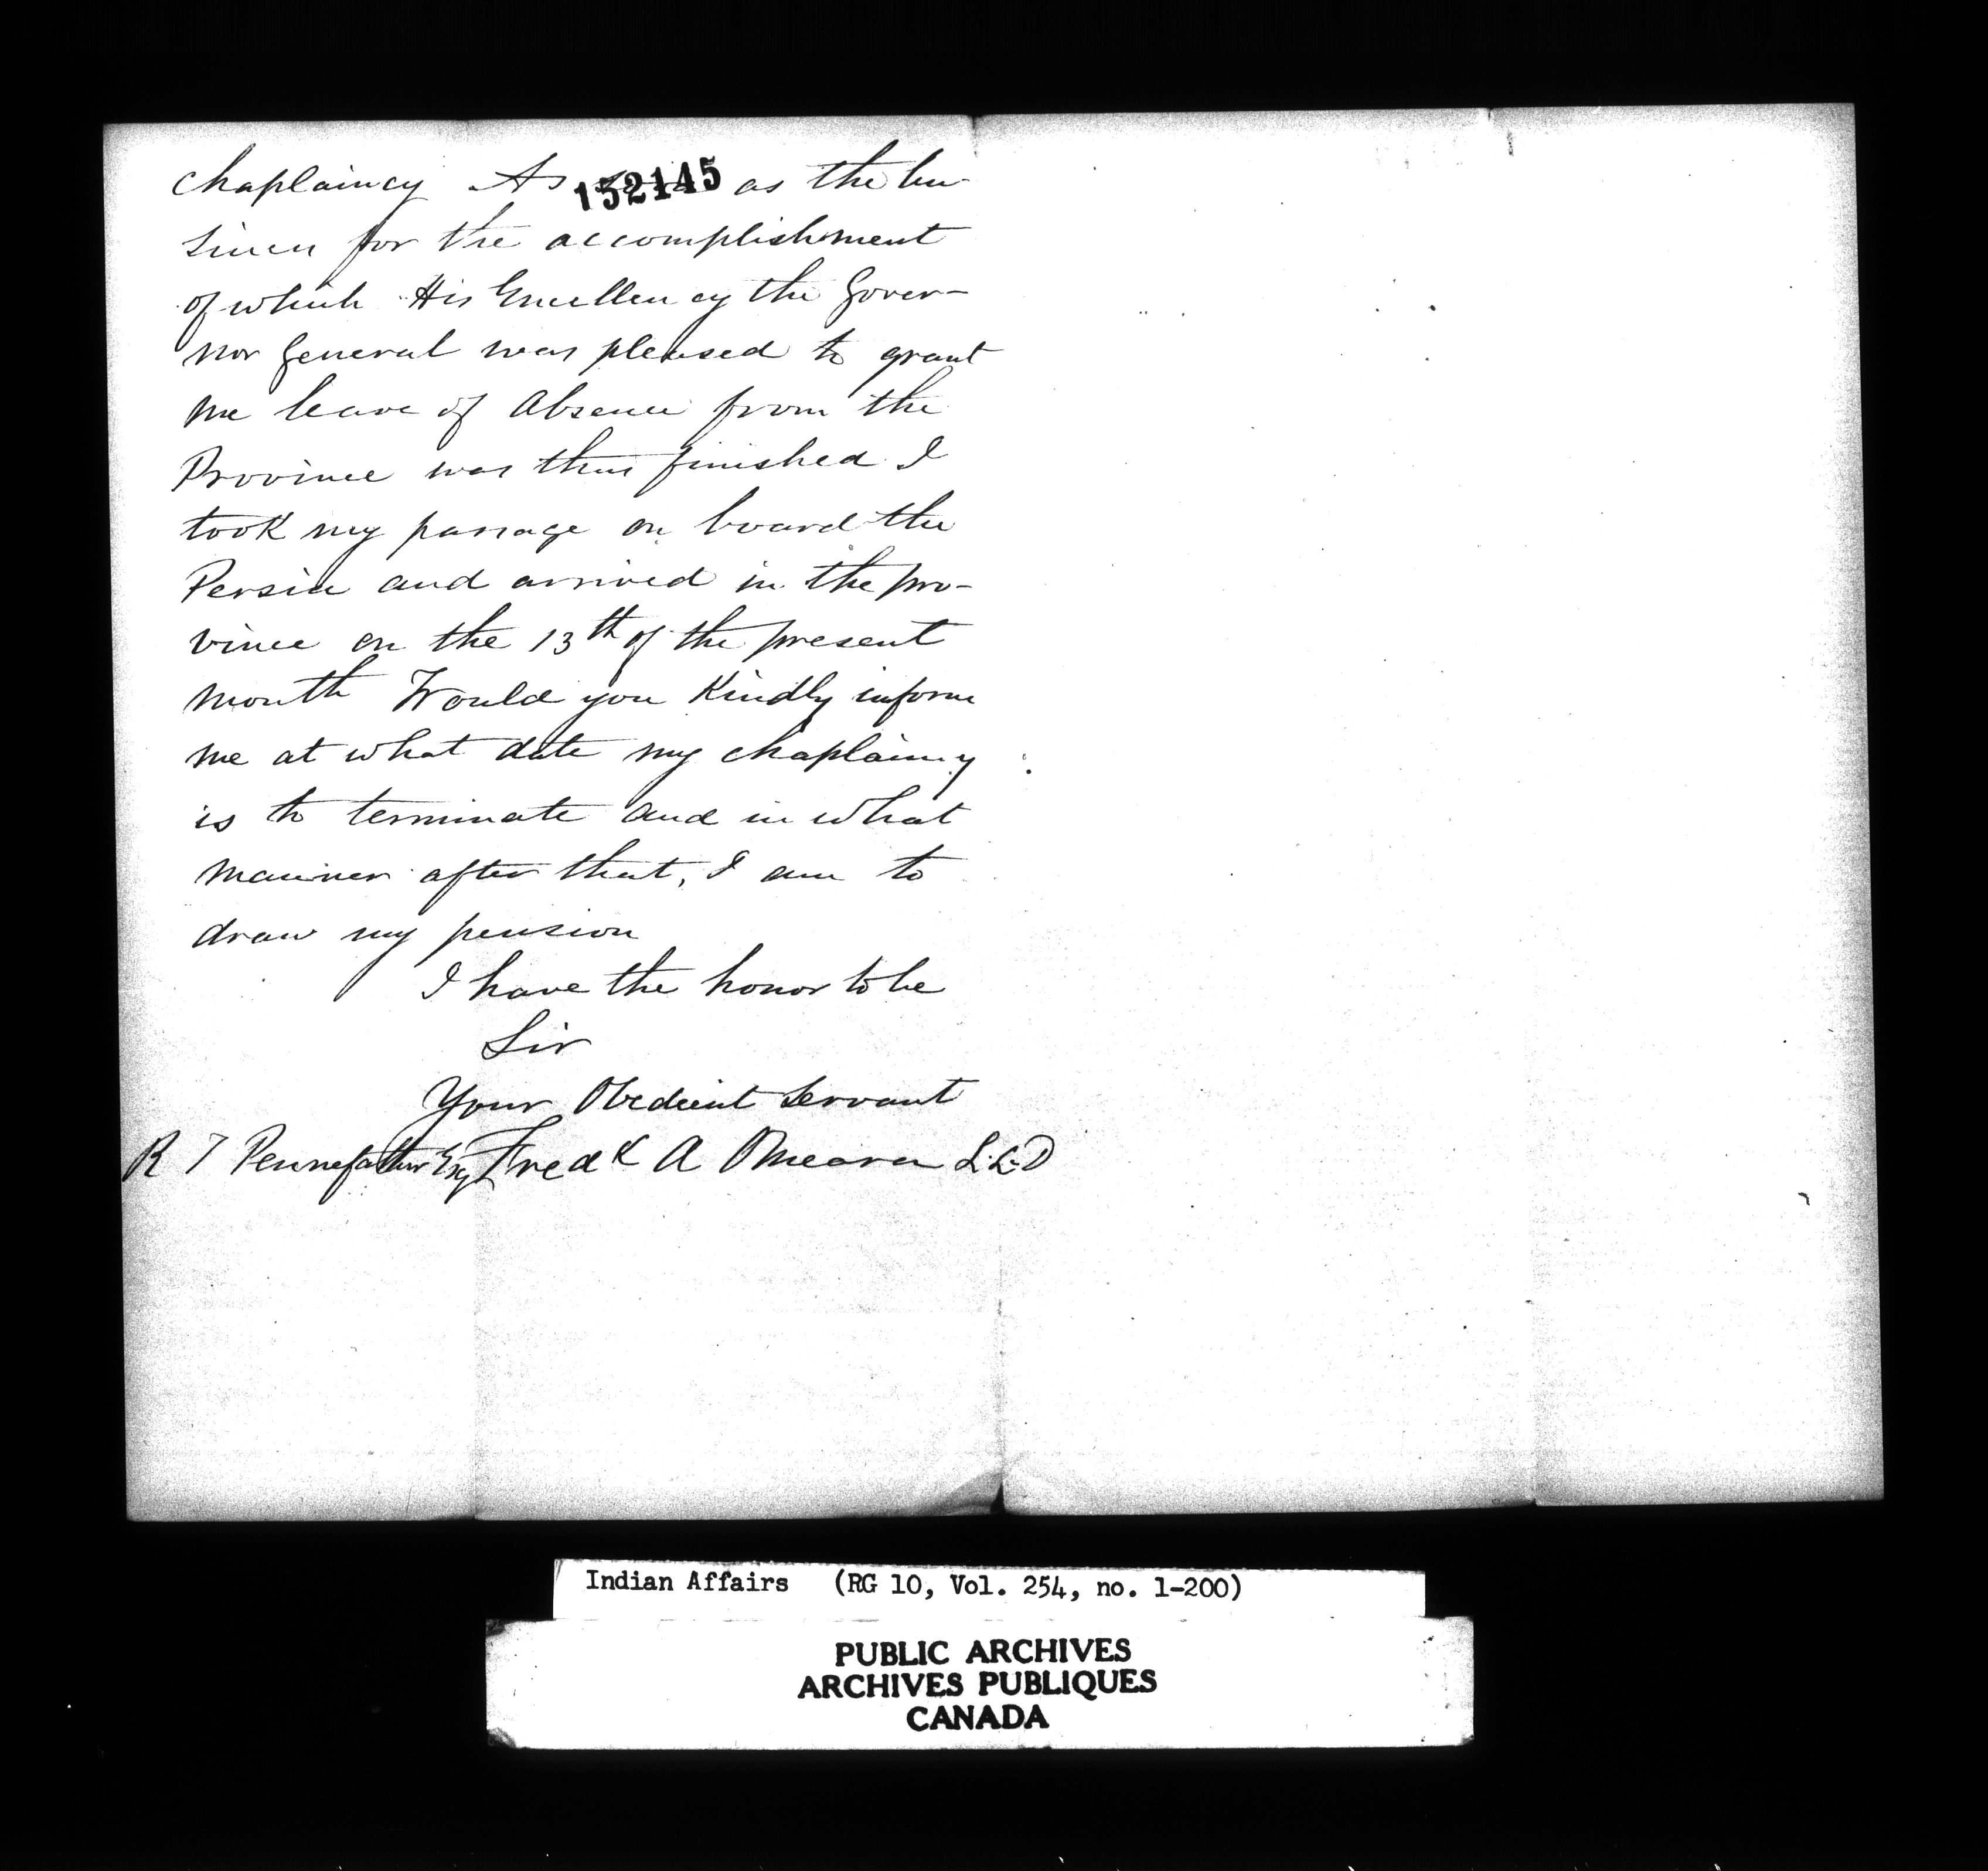 chaplaincy As 152145 as the bu-
siness for the accomplishment
of which His Excellency the Gover-
nor General was pleased to grant
me leave of absence from the
Province was thus finished I
took my passage on board the
Persia and arrived in the pro-
vince on the 13th of the present
month Would you kindly inform
me at what date my chaplaincy
is to terminate and in what
manner after that, I am to
draw my pension
I have the honor to be
Sir
Your Obedient Servant
R T Pennefather Esq Fredk A OMeara L.L.D
Indian Affairs (RG 10, Vol. 254, no. 1-200)
PUBLIC ARCHIVES
ARCHIVES PUBLIQUES
CANADA